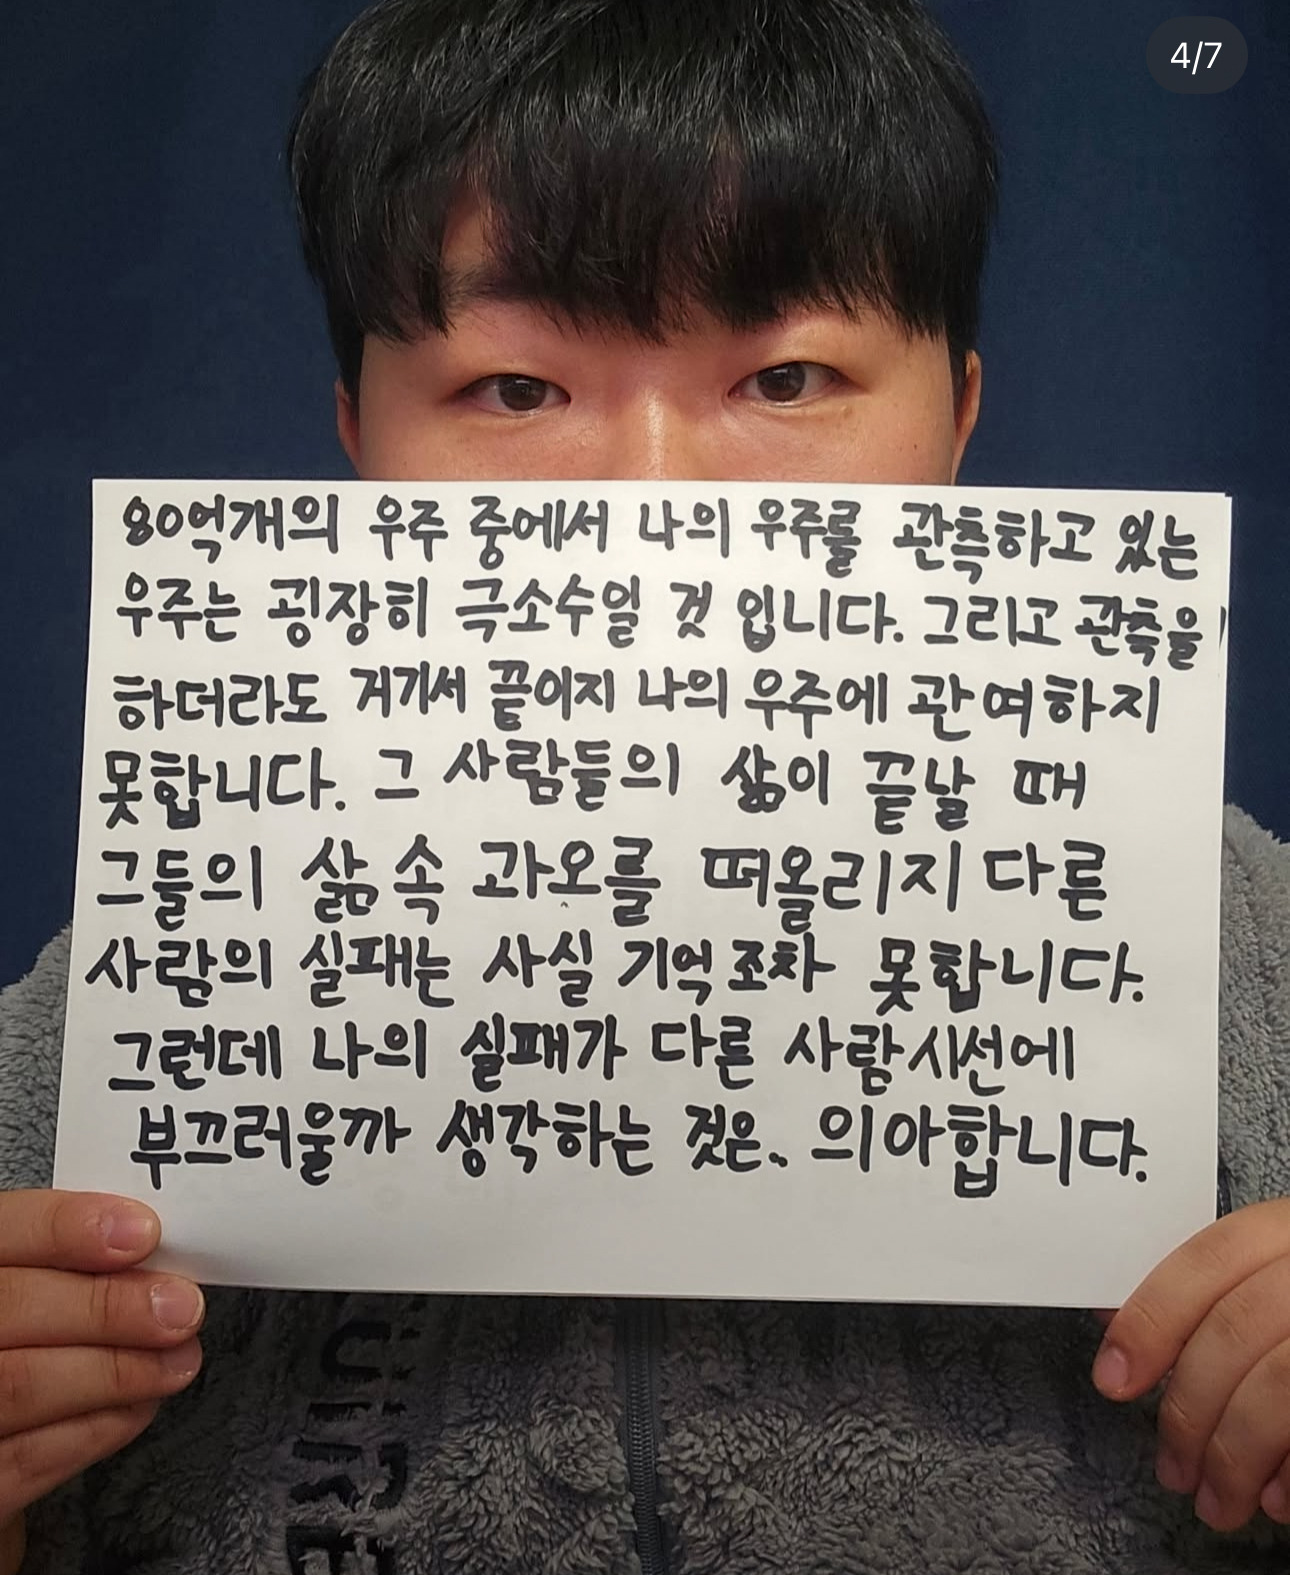 4/7
80억개의 우주 중에서 나의 우주를 관측하고 있는
우주는 굉장히 극소수일 것 입니다. 그리고 관측을
하더라도 거기서 끝이지 나의 우주에 관여하지
못합니다. 그 사람들의 삶이 끝날 때
그들의 삶 속 과오를 떠올리지 다른
사람의 실패는 사실 기억조차 못합니다.
그런데 나의 실패가 다른 사람시선에
부끄러울까 생각하는 것은.. 의아합니다.